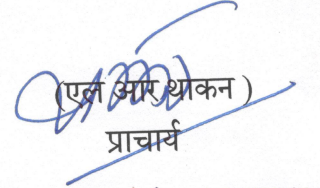 (एल आर थाकन )
प्राचार्य